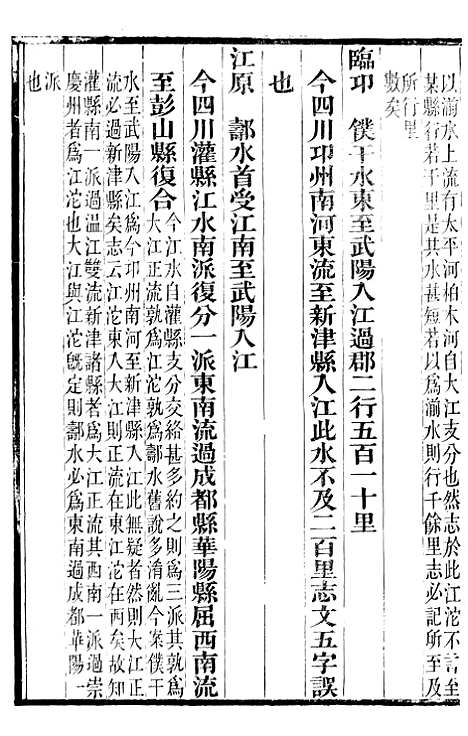 以湔水上流有太平河柏木河自大江支分也然志於此江沱不言至
某縣行若干里是其水甚短若以爲湔水則行千餘里志必記所至及
所行里
數矣
臨邛　僕千水東至武陽入江過郡二行五百一十里
今四川邛州南河東流至新津縣入江此水不及二百里志文五字誤
也
江原　䣢水首受江南至武陽入江
今四川灌縣江水南派復分一派東南流過成都縣華陽縣屈西南流
至彭山縣復合今江水自灌縣支分交絡甚多約之則爲三派其孰爲
大江正流孰爲江沱孰爲䣢水舊說多淆亂今案僕千
水至武陽入江爲今邛州南河至新津縣入江此無疑者然則大江正
流必過新津縣矣志云江沱東入大江則正流在東江沱在西矣故知
灌縣南一派過溫江雙流新津諸縣者爲大江正流其西南一派過崇
慶州者爲江沱也大江與江沱旣定則䣢水必爲東南過成都華陽一
派
也